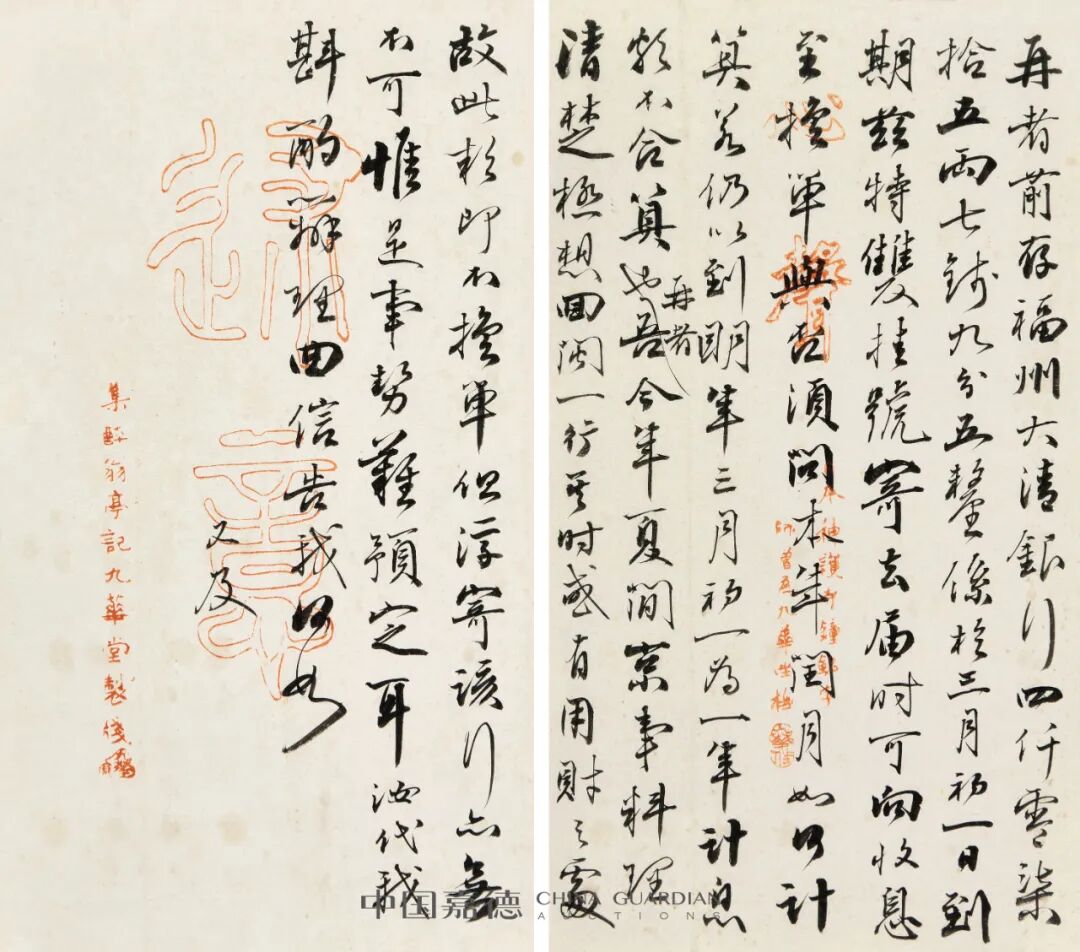 再者前存福州大清銀行四仟零柒
拾五兩七錢九分五釐係於三月初一日到
期茲特雙挂號寄去屆時可向收息
至換單與否須問本年閏月如何計
算若仍以到明年三月初一為一年計息
不合算也吾今年夏間京事料理
再者
清楚極想回閩一行其時或有用財之處
故此款即不換單但浮寄該行亦無
不可惟是事勢難預定耳汝代我
斟酌辦理由信告我何如
又及
集醉翁亭記九華堂製箋
中国嘉德 CHINA GUARDIAN
AUCTIONS